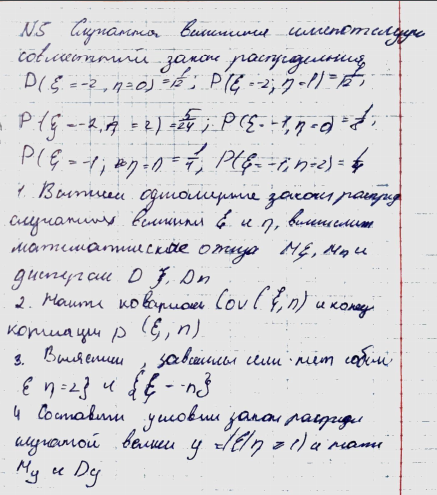 N5 Случайная величина имеют следую
совместный закон распределения
P(ξ=-2, η=0)=1/12; P(ξ=-2; η=1)=1/12;
P(ξ=-2, η=2)=5/24; P(ξ=-1, η=0)=1/8;
P(ξ=-1; η=1)=1/4; P(ξ=-1; η=2)=1/4
1. Выпишем одномерные законы распред
случайных величин ξ и η, вычислит
математические ожида Mξ, Mη и
дисперсии Dξ, Dη
2. Найти ковариаци Cov(ξ, η) и
корляции ρ(ξ, η)
3. Выяснит, зависимы или нет событ
{η=2} и {ξ=-η}
4 Составить условн закон распреде
случайной велич y=(ξ/η≥1) и найти
My и Dy